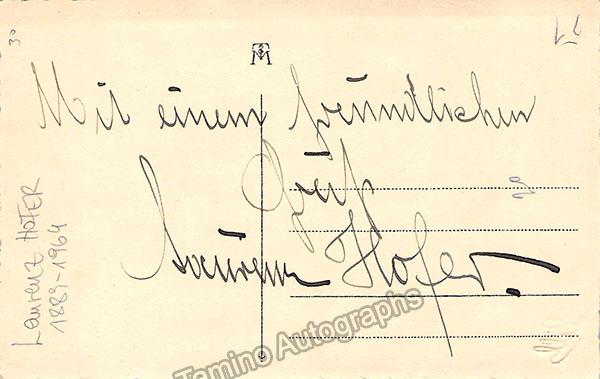 30
Mit einem freundlichen
Gruß
Laurenz Hofer.
Laurenz HOFER
1889-1964
Tamino Autographs